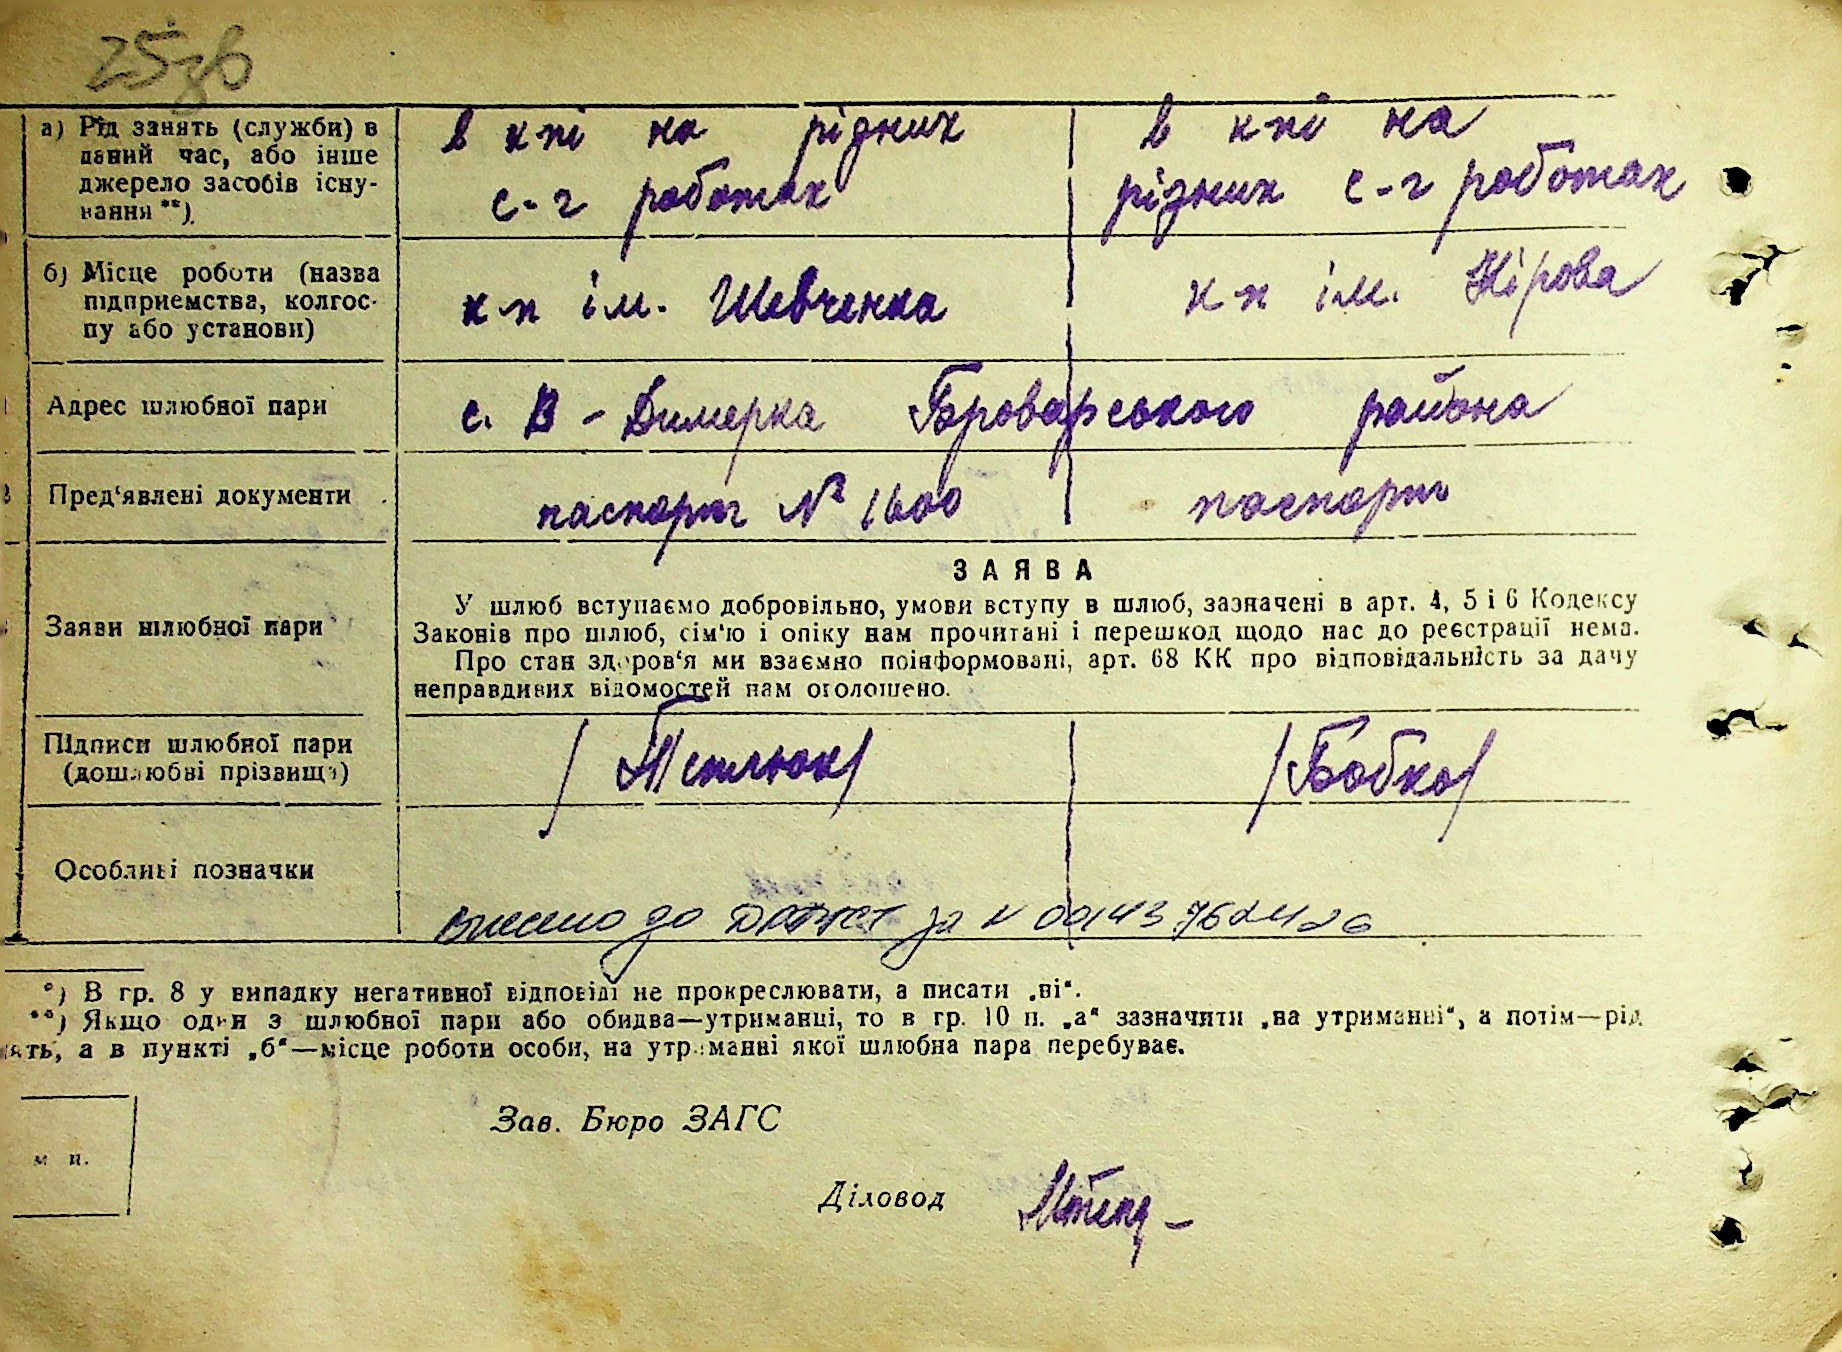 25зв
а) Рід занять (служби) в даний час, або інше джерело засобів існування **)
в кпі на рідних с-г роботах
в кпі на рідних с-г роботах
б) Місце роботи (назва підприємства, колгоспу або установи)
кп ім. Шевченка
кп ім. Кірова
Адрес шлюбної пари
с. В-Димерка Броварського района
Пред'явлені документи
паспорт № 1600
паспорт
ЗАЯВА
Заяви шлюбної пари
У шлюб вступаємо добровільно, умови вступу в шлюб, зазначені в арт. 4, 5 і 6 Кодексу
Законів про шлюб, сім'ю і опіку нам прочитані і перешкод щодо нас до реєстрації нема.
Про стан здоров'я ми взаємно поінформовані, арт. 68 КК про відповідальність за дачу
неправдивих відомостей нам оголошено.
Підписи шлюбної пари
(дошлюбні прізвища)
/ /
/Бобко/
Особливі позначки
внесено до ДРАЦСГ за №
*) В гр. 8 у випадку негативної відповіді не прокреслювати, а писати „ні“.
**) Якщо один з шлюбної пари або обидва—утриманці, то в гр. 10 п. „а“ зазначити „на утриманні“, а потім—рід
нять, а в пункті „б“—місце роботи особи, на утриманні якої шлюбна пара перебуває.
Зав. Бюро ЗАГС
м п.
Діловод